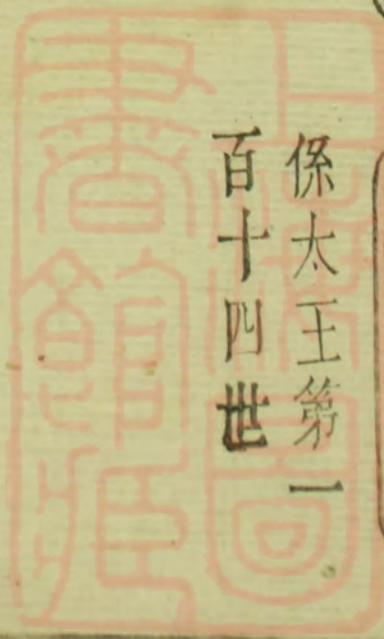 係太王第一
百十四世
上海圖
書館藏